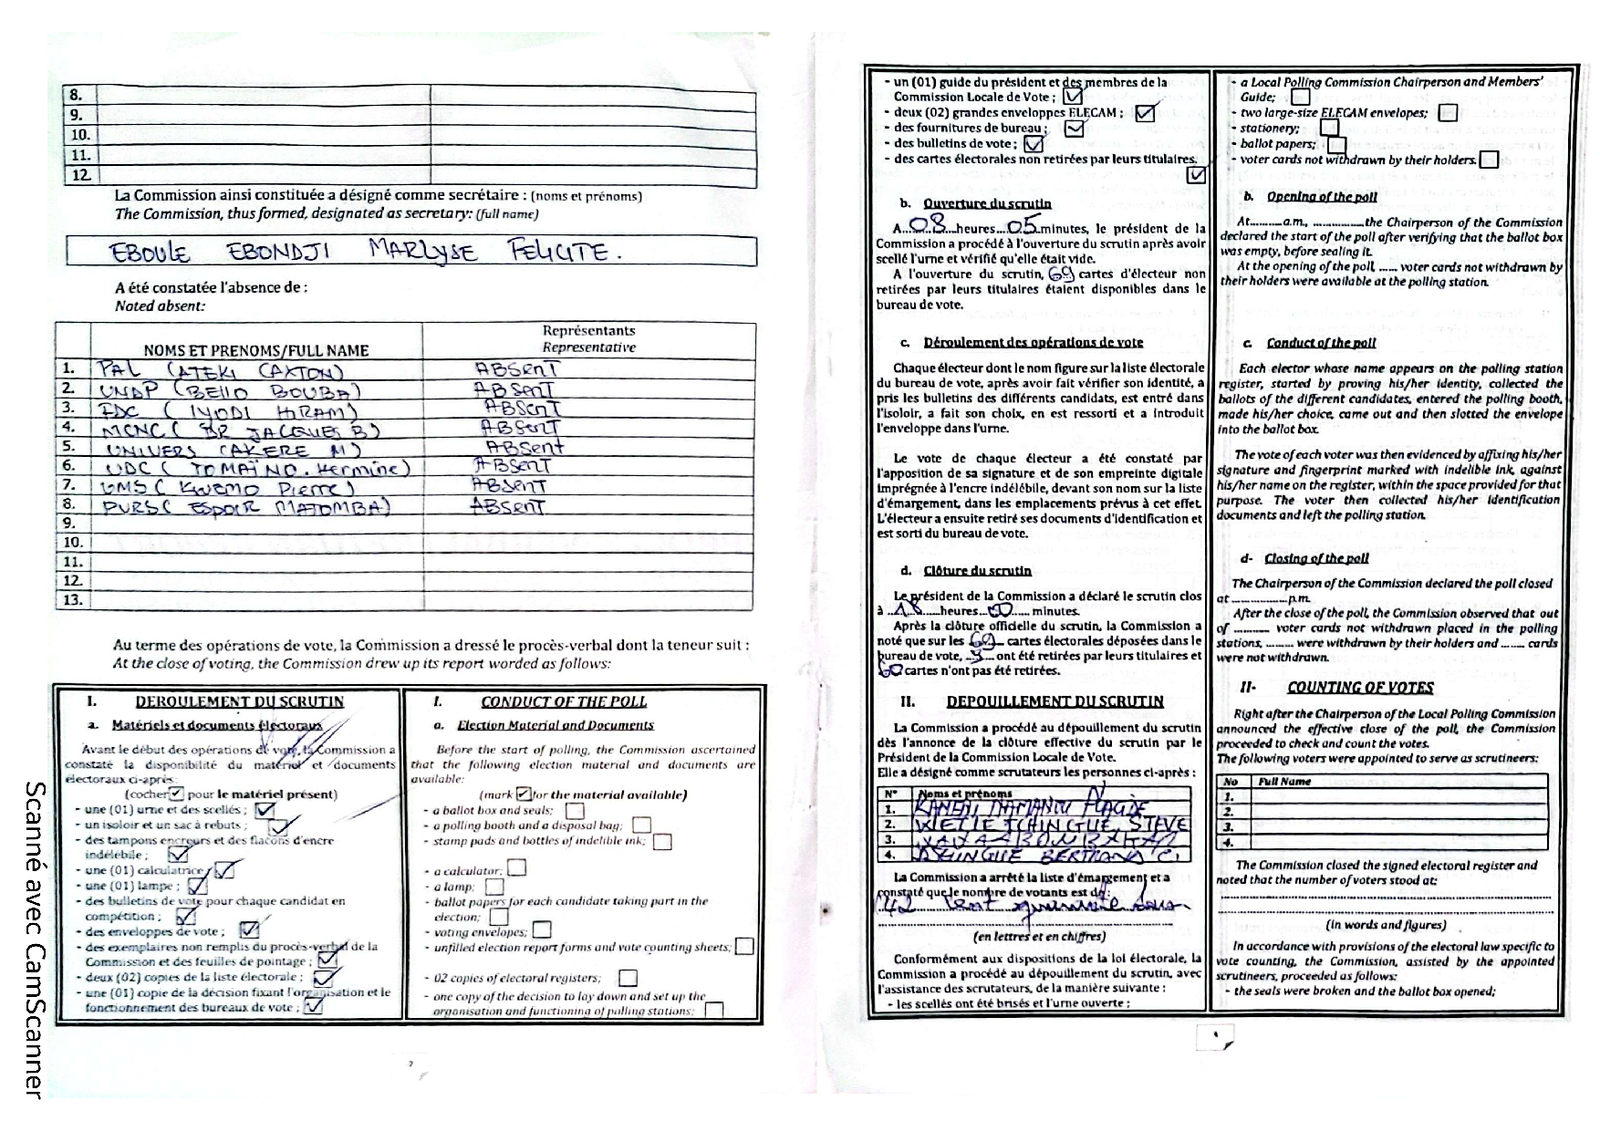 8.
9.
10.
11.
12.
La Commission ainsi constituée a désigné comme secrétaire : (noms et prénoms)
The Commission, thus formed, designated as secretary: (full name)
EBOULE EBONDJI MARLYSE FELICITE.
A été constatée l'absence de :
Noted absent:
NOMS ET PRENOMS/FULL NAME
Représentants
Representative
1. PAL (ATEKI CAXTON) ABSENT
2. UNDP (BELLO BOUBA) ABSENT
3. FDC ( IYODI HIRAM) ABSENT
4. MCNC ( JACQUES B) ABSENT
5. UNIVERS (AKERE M) ABSENT
6. UDC ( TOMAÏNO. Hermine) ABSENT
7. UMS ( KWEMO Pierre) ABSENT
8. PURS( ESPOIR MATOMBA) ABSENT
9.
10.
11.
12.
13.
Au terme des opérations de vote, la Commission a dressé le procès-verbal dont la teneur suit :
At the close of voting, the Commission drew up its report worded as follows:
I. DEROULEMENT DU SCRUTIN
a. Matériels et documents électoraux
Avant le début des opérations de vote, la Commission a
constaté la disponibilité du matériel et documents
électoraux ci-après:
(cocher ✓ pour le matériel présent)
- une (01) urne et des scellés ; ✓
- un isoloir et un sac à rebuts ; ✓
- des tampons encreurs et des flacons d'encre
indélébile ; ✓
- une (01) calculatrice ; ✓
- une (01) lampe ; ✓
- des bulletins de vote pour chaque candidat en
compétition ; ✓
- des enveloppes de vote ; ✓
- des exemplaires non remplis du procès-verbal de la
Commission et des feuilles de pointage ; ✓
- deux (02) copies de la liste électorale ; ✓
- une (01) copie de la décision fixant l'organisation et le
fonctionnement des bureaux de vote ; ✓
I. CONDUCT OF THE POLL
a. Election Material and Documents
Before the start of polling, the Commission ascertained
that the following election material and documents are
available:
(mark ✓ for the material available)
- a ballot box and seals;
- a polling booth and a disposal bag;
- stamp pads and bottles of indelible ink;
- a calculator;
- a lamp;
- ballot papers for each candidate taking part in the
election;
- voting envelopes;
- unfilled election report forms and vote counting sheets;
- 02 copies of electoral registers;
- one copy of the decision to lay down and set up the
organisation and functioning of polling stations;
Scanné avec CamScanner
- un (01) guide du président et des membres de la
Commission Locale de Vote ; ✓
- deux (02) grandes enveloppes ELECAM ; ✓
- des fournitures de bureau ; ✓
- des bulletins de vote ; ✓
- des cartes électorales non retirées par leurs titulaires.
✓
b. Ouverture du scrutin
A..08...heures...05.minutes, le président de la
Commission a procédé à l'ouverture du scrutin après avoir
scellé l'urne et vérifié qu'elle était vide.
A l'ouverture du scrutin, 69 cartes d'électeur non
retirées par leurs titulaires étaient disponibles dans le
bureau de vote.
c. Déroulement des opérations de vote
Chaque électeur dont le nom figure sur la liste électorale
du bureau de vote, après avoir fait vérifier son identité, a
pris les bulletins des différents candidats, est entré dans
l'isoloir, a fait son choix, en est ressorti et a introduit
l'enveloppe dans l'urne.
Le vote de chaque électeur a été constaté par
l'apposition de sa signature et de son empreinte digitale
imprégnée à l'encre indélébile, devant son nom sur la liste
d'émargement, dans les emplacements prévus à cet effet.
L'électeur a ensuite retiré ses documents d'identification et
est sorti du bureau de vote.
d. Clôture du scrutin
Le président de la Commission a déclaré le scrutin clos
à ..18.....heures...00..... minutes.
Après la clôture officielle du scrutin, la Commission a
noté que sur les 69 cartes électorales déposées dans le
bureau de vote, ont été retirées par leurs titulaires et
60 cartes n'ont pas été retirées.
II. DEPOUILLEMENT DU SCRUTIN
La Commission a procédé au dépouillement du scrutin
dès l'annonce de la clôture effective du scrutin par le
Président de la Commission Locale de Vote.
Elle a désigné comme scrutateurs les personnes ci-après :
N° Noms et prénoms
1. PLACIDE
2. STEVE
3.
4. BERTRAND
La Commission a arrêté la liste d'émargement et a
constaté que le nombre de votants est de:
142 Cent quarante deux
(en lettres et en chiffres)
Conformément aux dispositions de la loi électorale, la
Commission a procédé au dépouillement du scrutin, avec
l'assistance des scrutateurs, de la manière suivante :
- les scellés ont été brisés et l'urne ouverte ;
- a Local Polling Commission Chairperson and Members'
Guide;
- two large-size ELECAM envelopes;
- stationery;
- ballot papers;
- voter cards not withdrawn by their holders.
b. Opening of the poll
At..........a.m, ..............the Chairperson of the Commission
declared the start of the poll after verifying that the ballot box
was empty, before sealing it.
At the opening of the poll, ...... voter cards not withdrawn by
their holders were available at the polling station.
c. Conduct of the poll
Each elector whose name appears on the polling station
register, started by proving his/her identity, collected the
ballots of the different candidates, entered the polling booth,
made his/her choice, came out and then slotted the envelope
into the ballot box.
The vote of each voter was then evidenced by affixing his/her
signature and fingerprint marked with indelible ink, against
his/her name on the register, within the space provided for that
purpose. The voter then collected his/her identification
documents and left the polling station.
d- Closing of the poll
The Chairperson of the Commission declared the poll closed
at ..................p.m.
After the close of the poll, the Commission observed that out
of .......... voter cards not withdrawn placed in the polling
stations, ........ were withdrawn by their holders and ....... cards
were not withdrawn.
II- COUNTING OF VOTES
Right after the Chairperson of the Local Polling Commission
announced the effective close of the poll, the Commission
proceeded to check and count the votes.
The following voters were appointed to serve as scrutineers:
No Full Name
1.
2.
3.
4.
The Commission closed the signed electoral register and
noted that the number of voters stood at:
(in words and figures)
In accordance with provisions of the electoral law specific to
vote counting, the Commission, assisted by the appointed
scrutineers, proceeded as follows:
- the seals were broken and the ballot box opened;